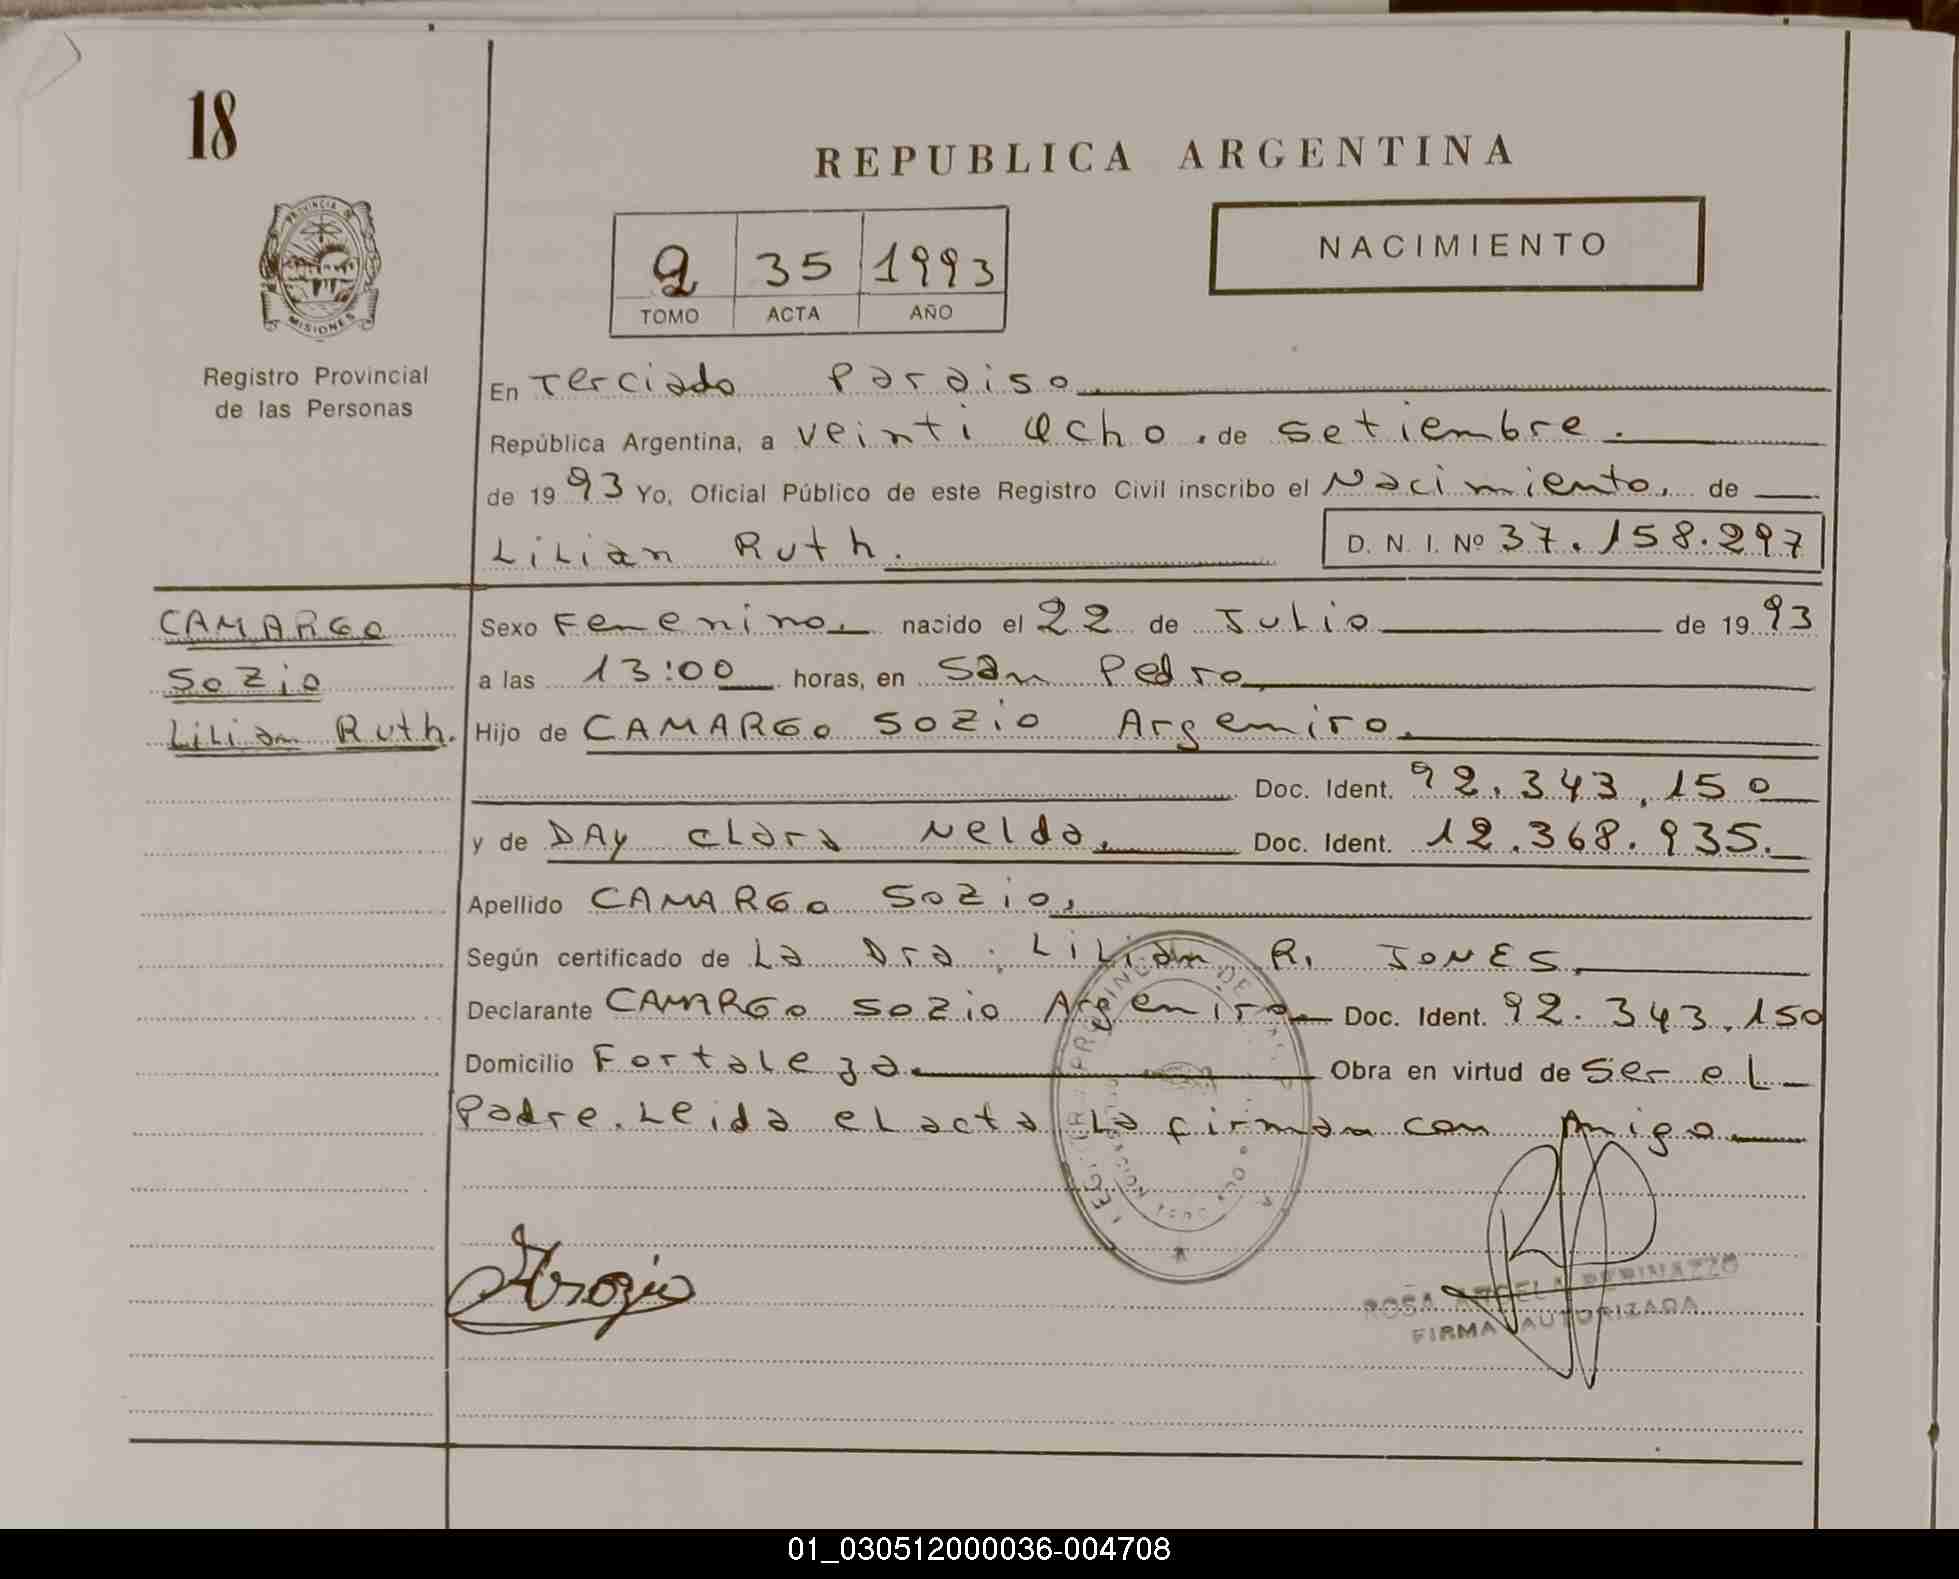 18
REPUBLICA ARGENTINA
NACIMIENTO
2 35 1993
TOMO ACTA AÑO
PROVINCIA DE
MISIONES
Registro Provincial
de las Personas
En Terciado Paraiso.
República Argentina, a veinti ocho. de setiembre.
de 1993 Yo, Oficial Público de este Registro Civil inscribo el Nacimiento. de
Lilian Ruth. D. N. I. Nº 37.158.297
CAMARGO
Sozio
Lilian Ruth.
Sexo Femenino. nacido el 22 de Julio de 1993
a las 13:00 horas, en San Pedro
Hijo de CAMARGO SOZIO Argemiro.
Doc. Ident. 92.343.150
y de DAY Clara Nelda. Doc. Ident. 12.368.935.
Apellido CAMARGO SOZIO.
Según certificado de La Dra. Lilian R. JONES.
Declarante CAMARGO SOZIO Argemiro Doc. Ident. 92.343.150
Domicilio Fortaleza. Obra en virtud de Ser el
Padre. Leida el acta la firman con Amigo
ROSA PERINAZZO
FIRMA AUTORIZADA
01_030512000036-004708